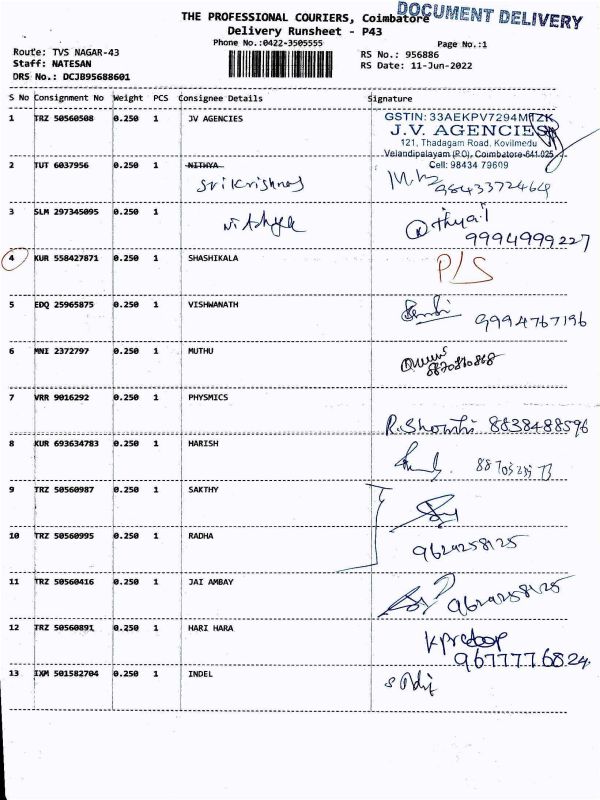 DOCUMENT DELIVERY
THE PROFESSIONAL COURIERS, Coimbatore
Delivery Runsheet - P43
Phone No.:0422-3505555
Page No.:1
Route: TVS NAGAR-43
Staff: NATESAN
DRS No.: DCJB95688601
RS No.: 956886
RS Date: 11-Jun-2022
S No Consignment No Weight PCS Consignee Details Signature
1 TRZ 50560508 0.250 1 JV AGENCIES
GSTIN: 33AEKPV7294M1ZK
J.V. AGENCIES
121, Thadagam Road, Kovilmedu
Velandipalayam (P.O), Coimbatore-641.025
Cell: 98434 79609
2 TUT 6037956 0.250 1 NITHYA
Srikrishnas
9843372464
3 SLM 297345095 0.250 1
Nithya
9994999227
4 KUR 558427871 0.250 1 SHASHIKALA P/S
5 EDQ 25965875 0.250 1 VISHWANATH
9994767196
6 MNI 2372797 0.250 1 MUTHU
7 VRR 9016292 0.250 1 PHYSMICS
R. Shanthi 8838488596
8 KUR 693634783 0.250 1 HARISH
9 TRZ 50560987 0.250 1 SAKTHY
10 TRZ 50560995 0.250 1 RADHA
9629258125
11 TRZ 50560416 0.250 1 JAI AMBAY
9629258125
12 TRZ 50560891 0.250 1 HARI HARA
K pradeep
9677776824
13 IXM 501582704 0.250 1 INDEL